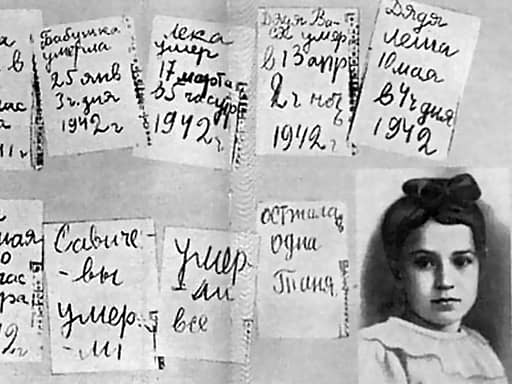 в
час
а
Бабушка
умерла
25 янв
3 ч. дня
1942 г
Лека
умер
17 марта
в 5 час утр
1942 г
Дядя Ва-
ся умер
в 13 апр
2 ч ноч
1942 г
Дядя
Леша
10 мая
в 4 ч дня
1942
мая
час
Савиче-
-вы
умер-
-ли
умер
-ли
все
осталась
одна
Таня